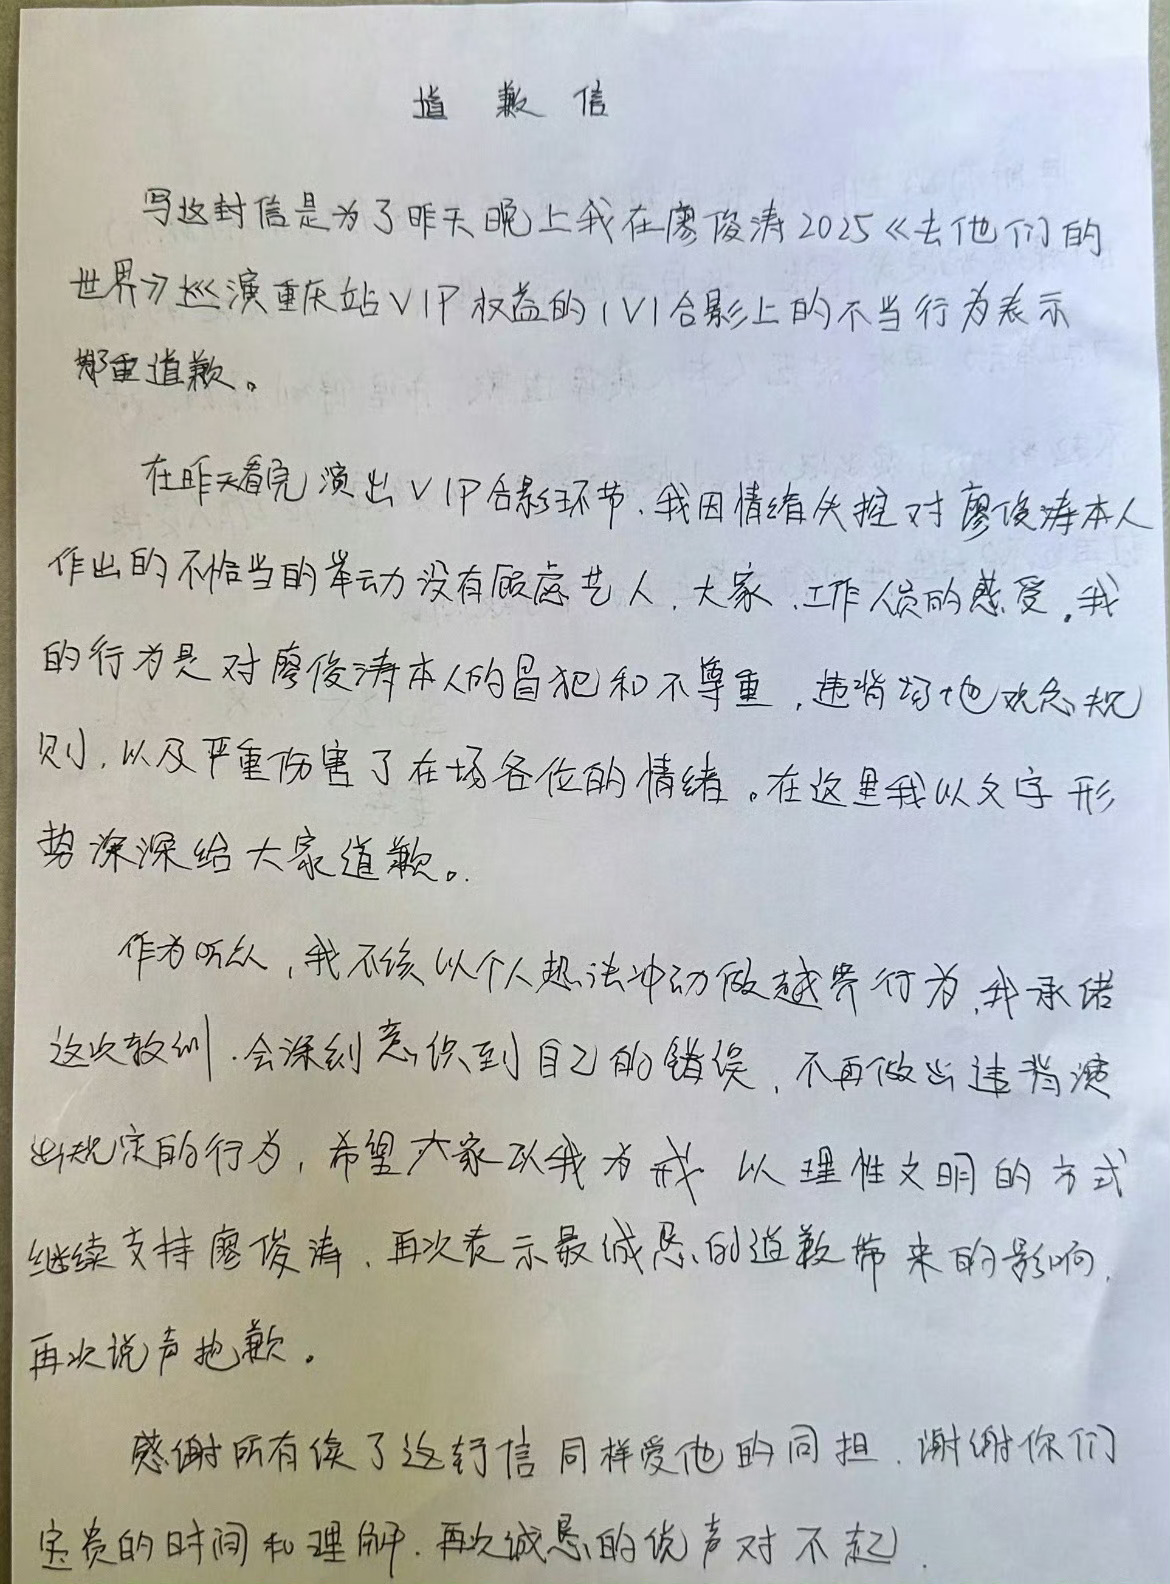 道歉信
写这封信是为了昨天晚上我在廖俊涛2025《去他们的
世界》巡演重庆站VIP权益的1V1合影上的不当行为表示
郑重道歉。
在昨天看完演出VIP合影环节、我因情绪失控对廖俊涛本人
作出的不恰当的举动没有顾虑艺人、大家、工作人员的感受。我
的行为是对廖俊涛本人的冒犯和不尊重,违背场地观念规
则、以及严重伤害了在场各位的情绪。在这里我以文字形
势深深给大家道歉。
作为听众,我不该以个人想法冲动做越界行为,我承诺
这次教训、会深刻意识到自己的错误,不再做出违背演
出规定的行为,希望大家以我为戒 以理性文明的方式
继续支持廖俊涛、再次表示最诚恳的道歉带来的影响,
再次说声抱歉。
感谢所有读了这封信同样爱他的同担、谢谢你们
宝贵的时间和理解、再次诚恳的说声对不起.